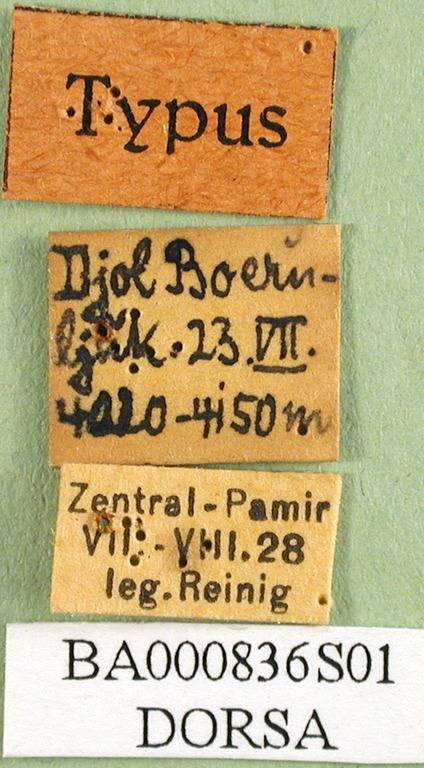 Typus
Djol Boeru-
ljuk. 23. VII.
4020-4150 m
Zentral-Pamir
VII. - VIII. 28
leg. Reinig
BA000836S01
DORSA